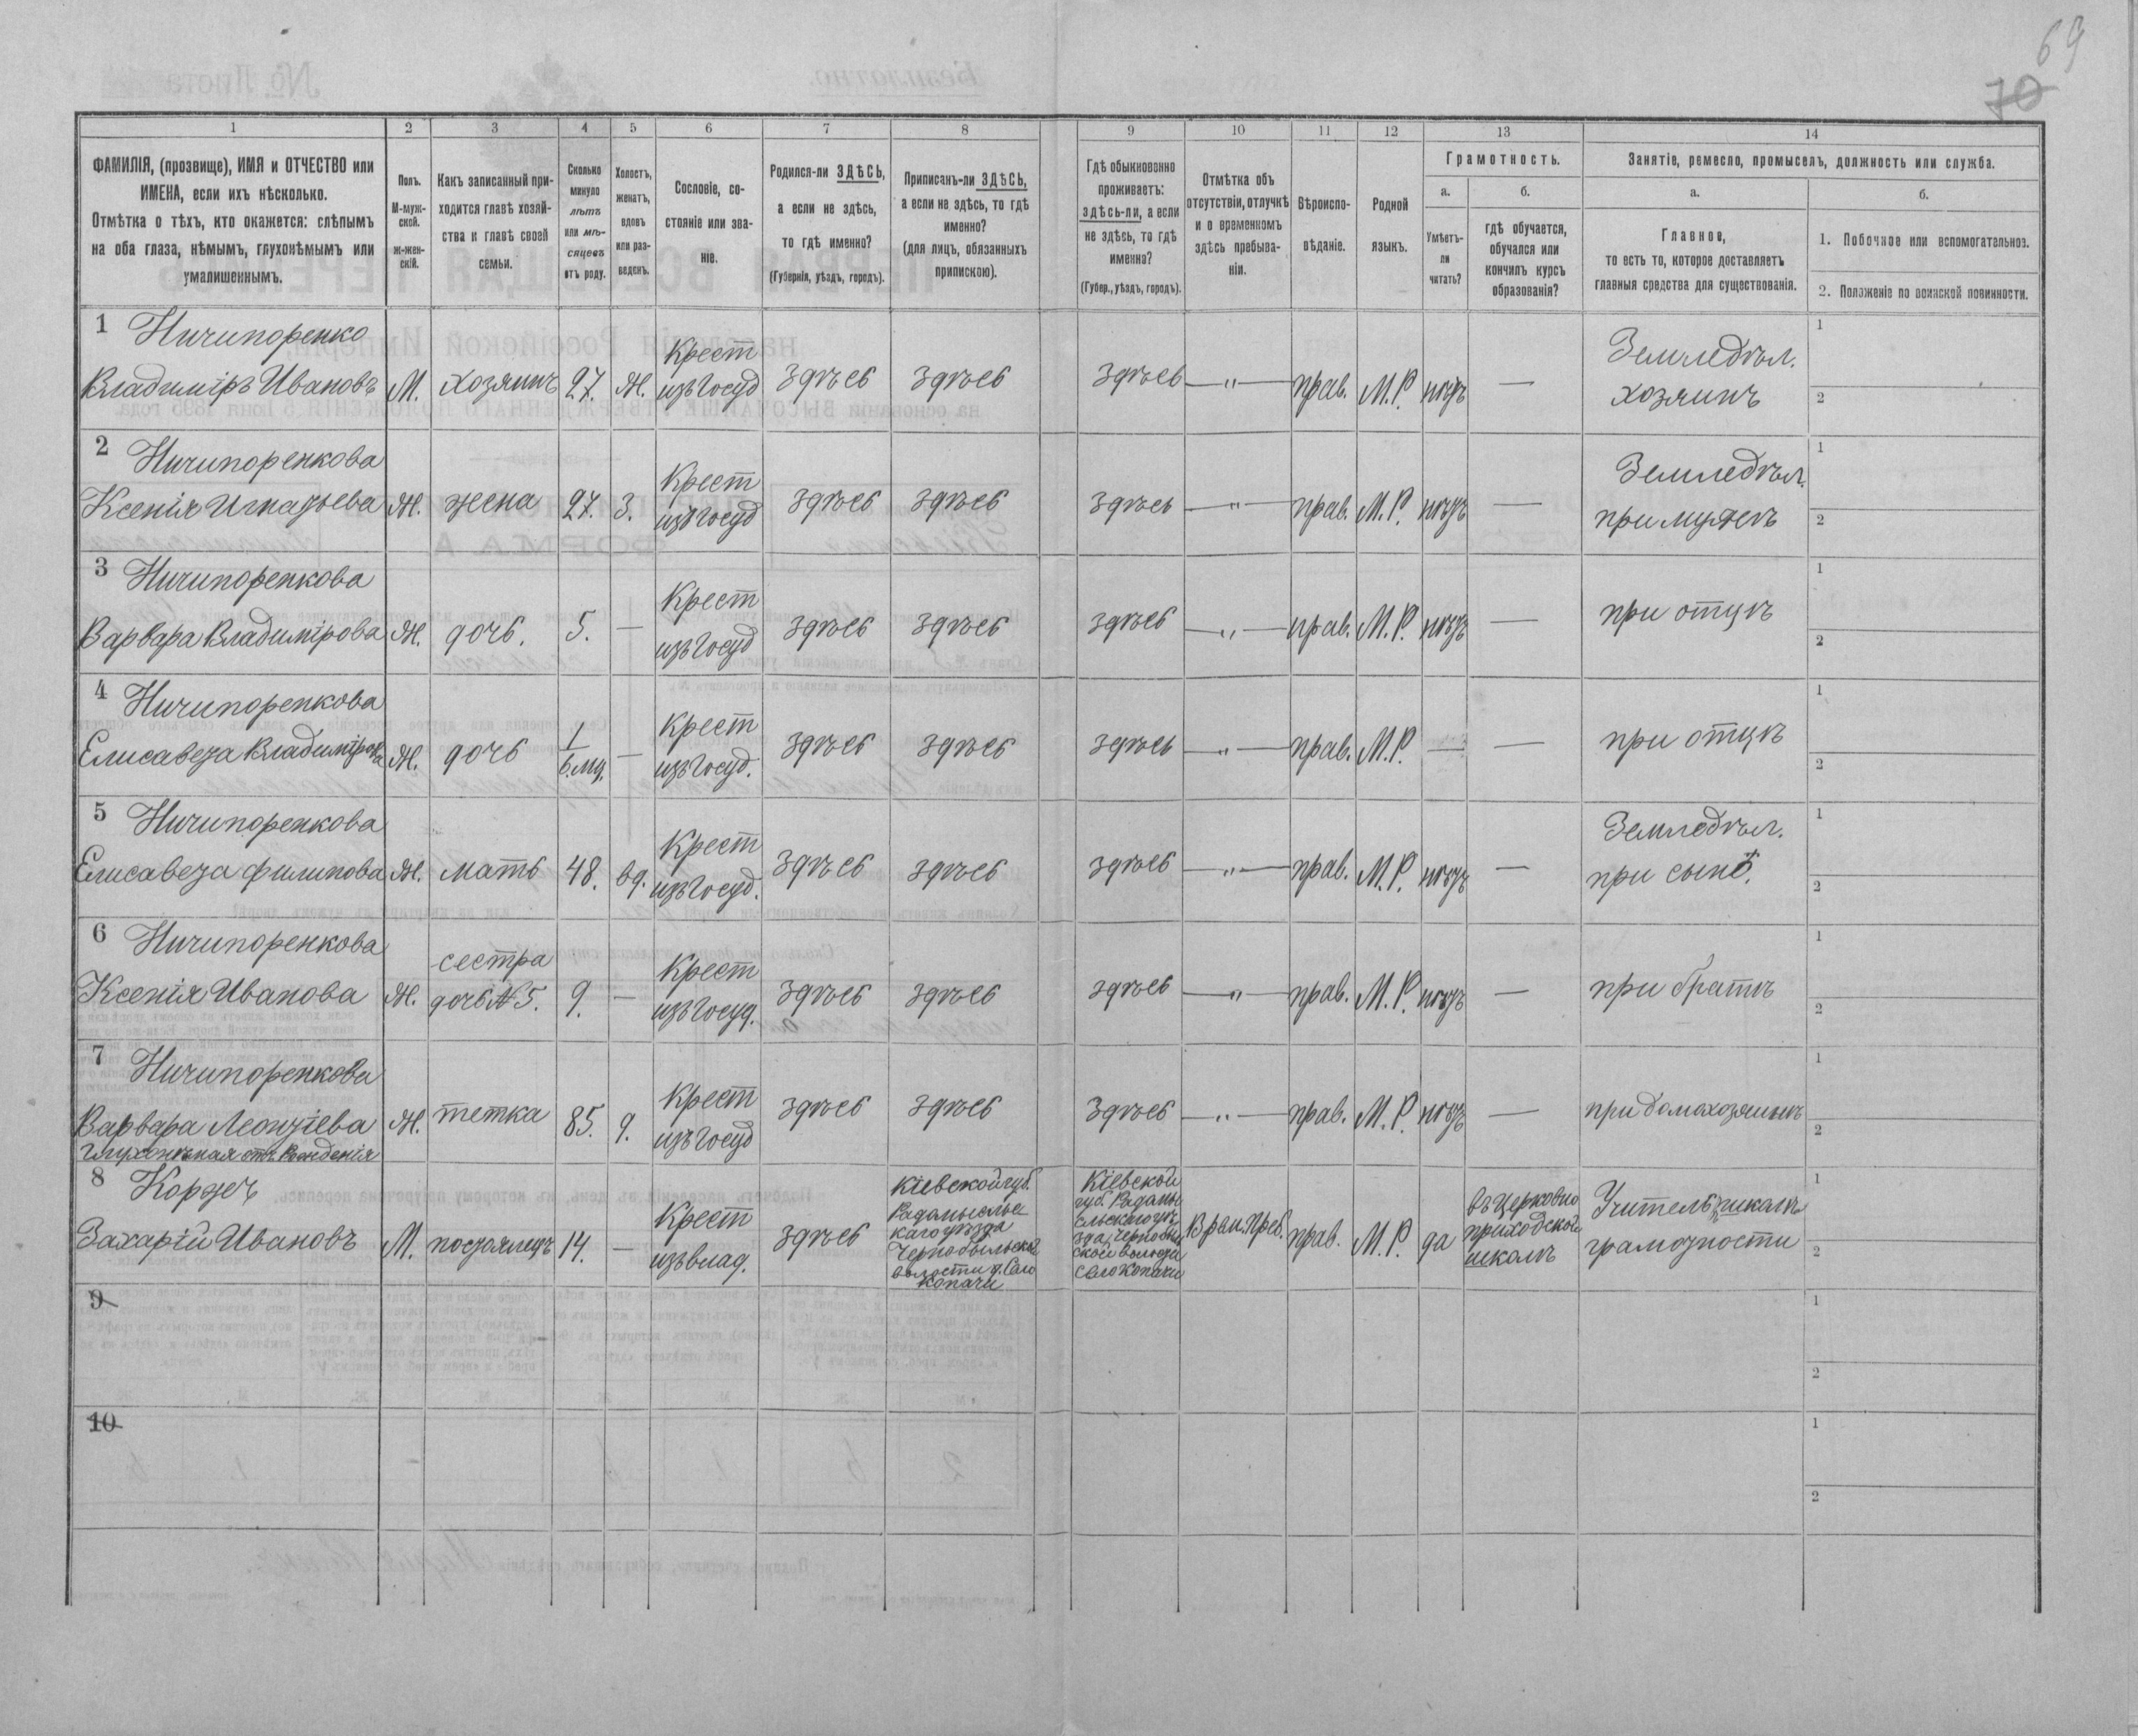 69
70
1 2 3 4 5 6 7 8 9 10 11 12 13 14
ФАМИЛІЯ, (прозвище), ИМЯ и ОТЧЕСТВО или
ИМЕНА, если ихъ нѣсколько.
Отмѣтка о тѣхъ, кто окажется: слѣпымъ
на оба глаза, нѣмымъ, глухонѣмымъ или
умалишеннымъ.
Полъ.
М-муж-
ской.
ж-жен-
скій.
Какъ записанный при-
ходится главѣ хозяй-
ства и главѣ своей
семьи.
Сколько
минуло
лѣтъ
или мѣ-
сяцевъ
отъ роду.
Холостъ,
женатъ,
вдовъ
или раз-
веденъ.
Сословіе, со-
стояніе или зва-
ніе.
Родился-ли ЗДѢСЬ,
а если не здѣсь,
то гдѣ именно?
(Губернія, уѣздъ, городъ).
Приписанъ-ли ЗДѢСЬ,
а если не здѣсь, то гдѣ
именно?
(для лицъ, обязанныхъ
припискою).
Гдѣ обыкновенно
проживаетъ:
здѣсь-ли, а если
не здѣсь, то гдѣ
именно?
(Губер., уѣздъ, городъ).
Отмѣтка объ
отсутствіи, отлучкѣ
и о временномъ
здѣсь пребыва-
ніи.
Вѣроиспо-
вѣданіе.
Родной
языкъ.
Грамотность.
а.
Умѣетъ-
ли
читать?
б.
гдѣ обучается,
обучался или
кончилъ курсъ
образованія?
Занятіе, ремесло, промыселъ, должность или служба.
а.
Главное,
то есть то, которое доставляетъ
главныя средства для существованія.
б.
1. Побочное или вспомогательное.
2. Положеніе по воинской повинности.
1 Ничипоренко
Владиміръ Ивановъ М. хозяинъ 27. Ж. Крест
изъ Госуд здѣсь здѣсь здѣсь — " — прав. М.Р. нѣтъ — Земледѣл.
хозяинъ 1
2
2 Ничипоренкова
Ксенія Игнатьева Ж. жена 27. З. Крест
изъ Госуд здѣсь здѣсь здѣсь — " — прав. М.Р. нѣтъ — Земледѣл.
при мужѣ 1
2
3 Ничипоренкова
Варвара Владимірова Ж. дочь. 5. — Крест
изъ Госуд здѣсь здѣсь здѣсь — " — прав. М.Р. нѣтъ — при отцѣ 1
2
4 Ничипоренкова
Елисавета Владимірова Ж. дочь 1
6.мц. — Крест
изъ Госуд. здѣсь здѣсь здѣсь — " — прав. М.Р. — — при отцѣ 1
2
5 Ничипоренкова
Елисавета Филипова Ж. мать 48. вд. Крест
изъ Госуд. здѣсь здѣсь здѣсь — " — прав. М.Р. нѣтъ — Земледѣл.
при сынѣ. 1
2
6 Ничипоренкова
Ксенія Иванова Ж. сестра
дочь №5. 9. — Крест
изъ Госуд. здѣсь здѣсь здѣсь — " — прав. М.Р. нѣтъ — при братѣ 1
2
7 Ничипоренкова
Варвара Леонтіева
Глухонѣмая отъ Рожденія Ж. тетка 85. д. Крест
изъ Госуд здѣсь здѣсь здѣсь — " — прав. М.Р. нѣтъ — при домохозяинѣ 1
2
8 Коржъ
Захарій Ивановъ М. постоялецъ 14. — Крест
изъ влад. здѣсь Кіевской губ.
Радомысльс
каго уѣзда
Чернобыльской
волости
Копачи
Кіевской
губ. Радомы
сльскаго уѣ
зда, Чернобыль
ской волости
село Копачи
Врем. Преб. прав. М.Р. да въ Церковно
приходской
школѣ Учитель школы
грамотности 1
2
9 1
2
10 1
2